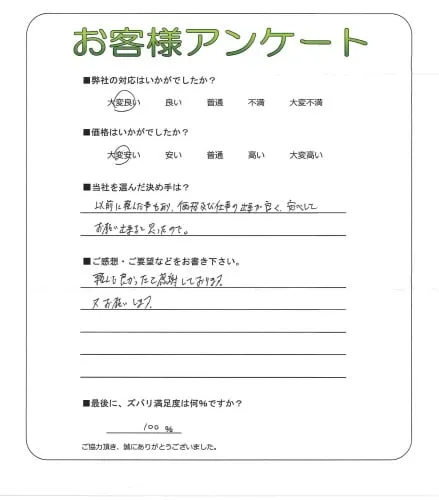 お客様アンケート
■弊社の対応はいかがでしたか？
大変良い 良い 普通 不満 大変不満
■価格はいかがでしたか？
大変安い 安い 普通 高い 大変高い
■当社を選んだ決め手は？
以前に頼んだ事もあり、価格及び仕事の出来が良く、安心して
お願い出来ると思ったので。
■ご感想・ご要望などをお書き下さい。
頼んで良かったと感謝しております。
又お願いします。
■最後に、ズバリ満足度は何％ですか？
100 %
ご協力頂き、誠にありがとうございました。